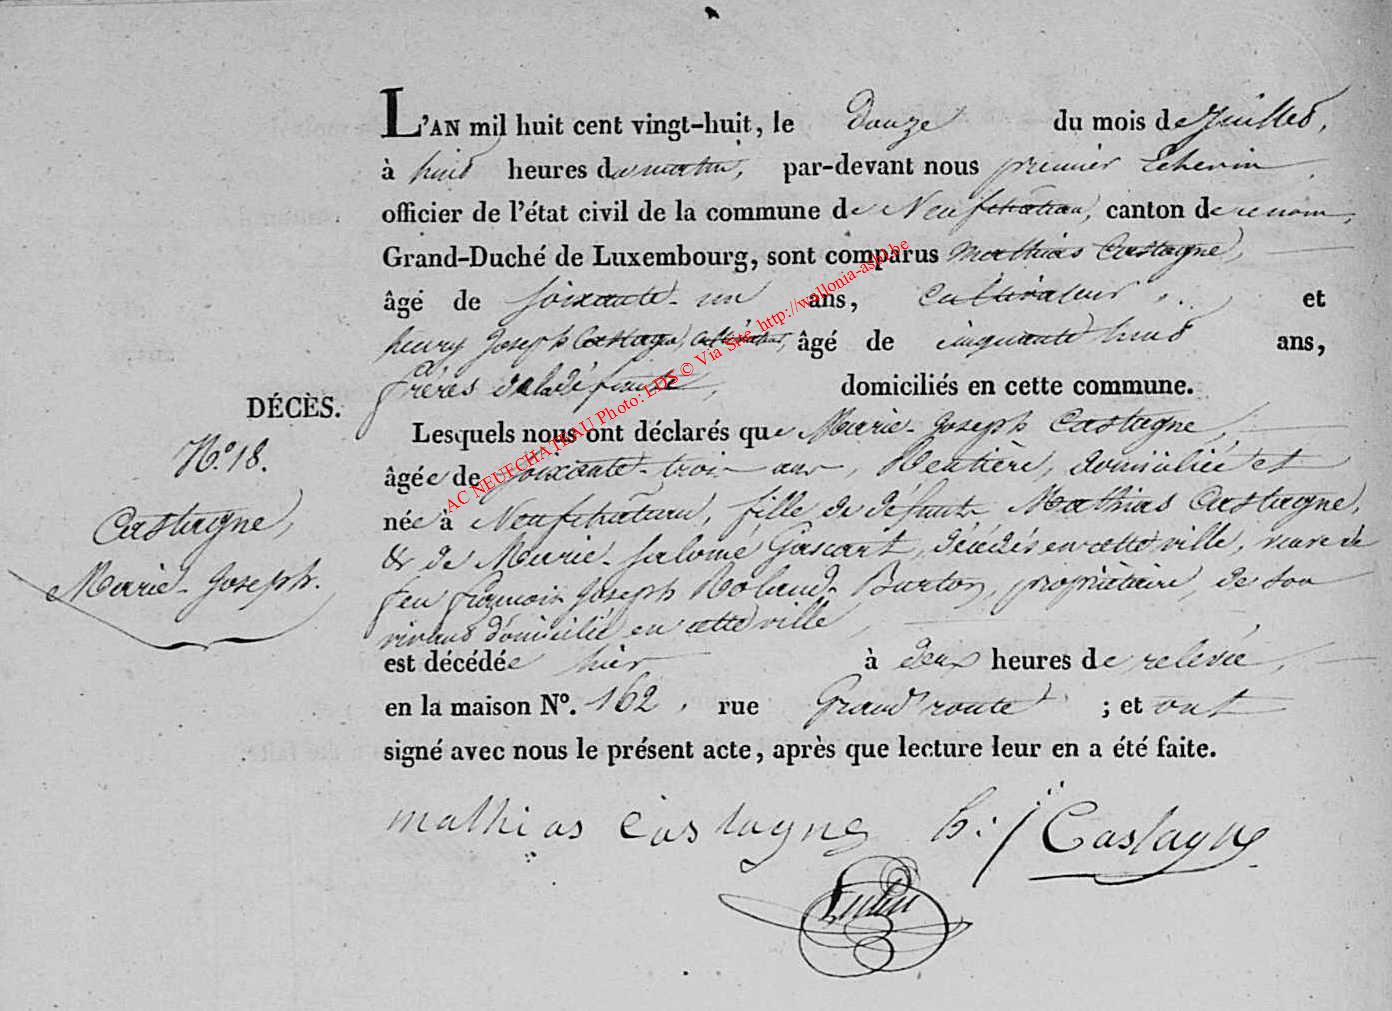 L'AN mil huit cent vingt-huit, le douze du mois de Juillet,
à huit heures du matin, par-devant nous premier Echevin,
officier de l'état civil de la commune de Neufchâteau, canton de ce nom,
Grand-Duché de Luxembourg, sont comparus Mathias Castagne,
âgé de soixante-un ans, Cultivateur, et
henry Joseph Castagne, Cultivateur, âgé de cinquante huit ans,
frères de la défunte, domiciliés en cette commune.
DÉCÈS.
N.º 18.
Castagne,
Marie-Joseph.
Lesquels nous ont déclarés que Marie-Joseph Castagne,
âgée de soixante-trois ans, Rentière, domiciliée et
née à Neufchâteau, fille de defunts Mathias Castagne,
& de Marie-Salomé Gascart, décédés en cette ville, veuve de
feu françois Joseph Roland Burton, propriétaire, de son
vivant domicilié en cette ville,
est décédée hier à deux heures de relevée,
en la maison Nº. 162, rue Grand'route ; et ont
signé avec nous le présent acte, après que lecture leur en a été faite.
mathias Castagne h: j Castagne
AC NEUFCHATEAU Photo: LDS © Via Site http://wallonia-asbl.be